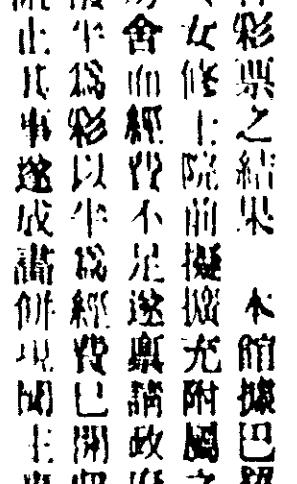 彩票之結果　本館據巴
女修士院前擬擴充附屬之
會而經費不足遂稟請政府
半為彩以半為經費已開
止其事遂成畫餅現聞主